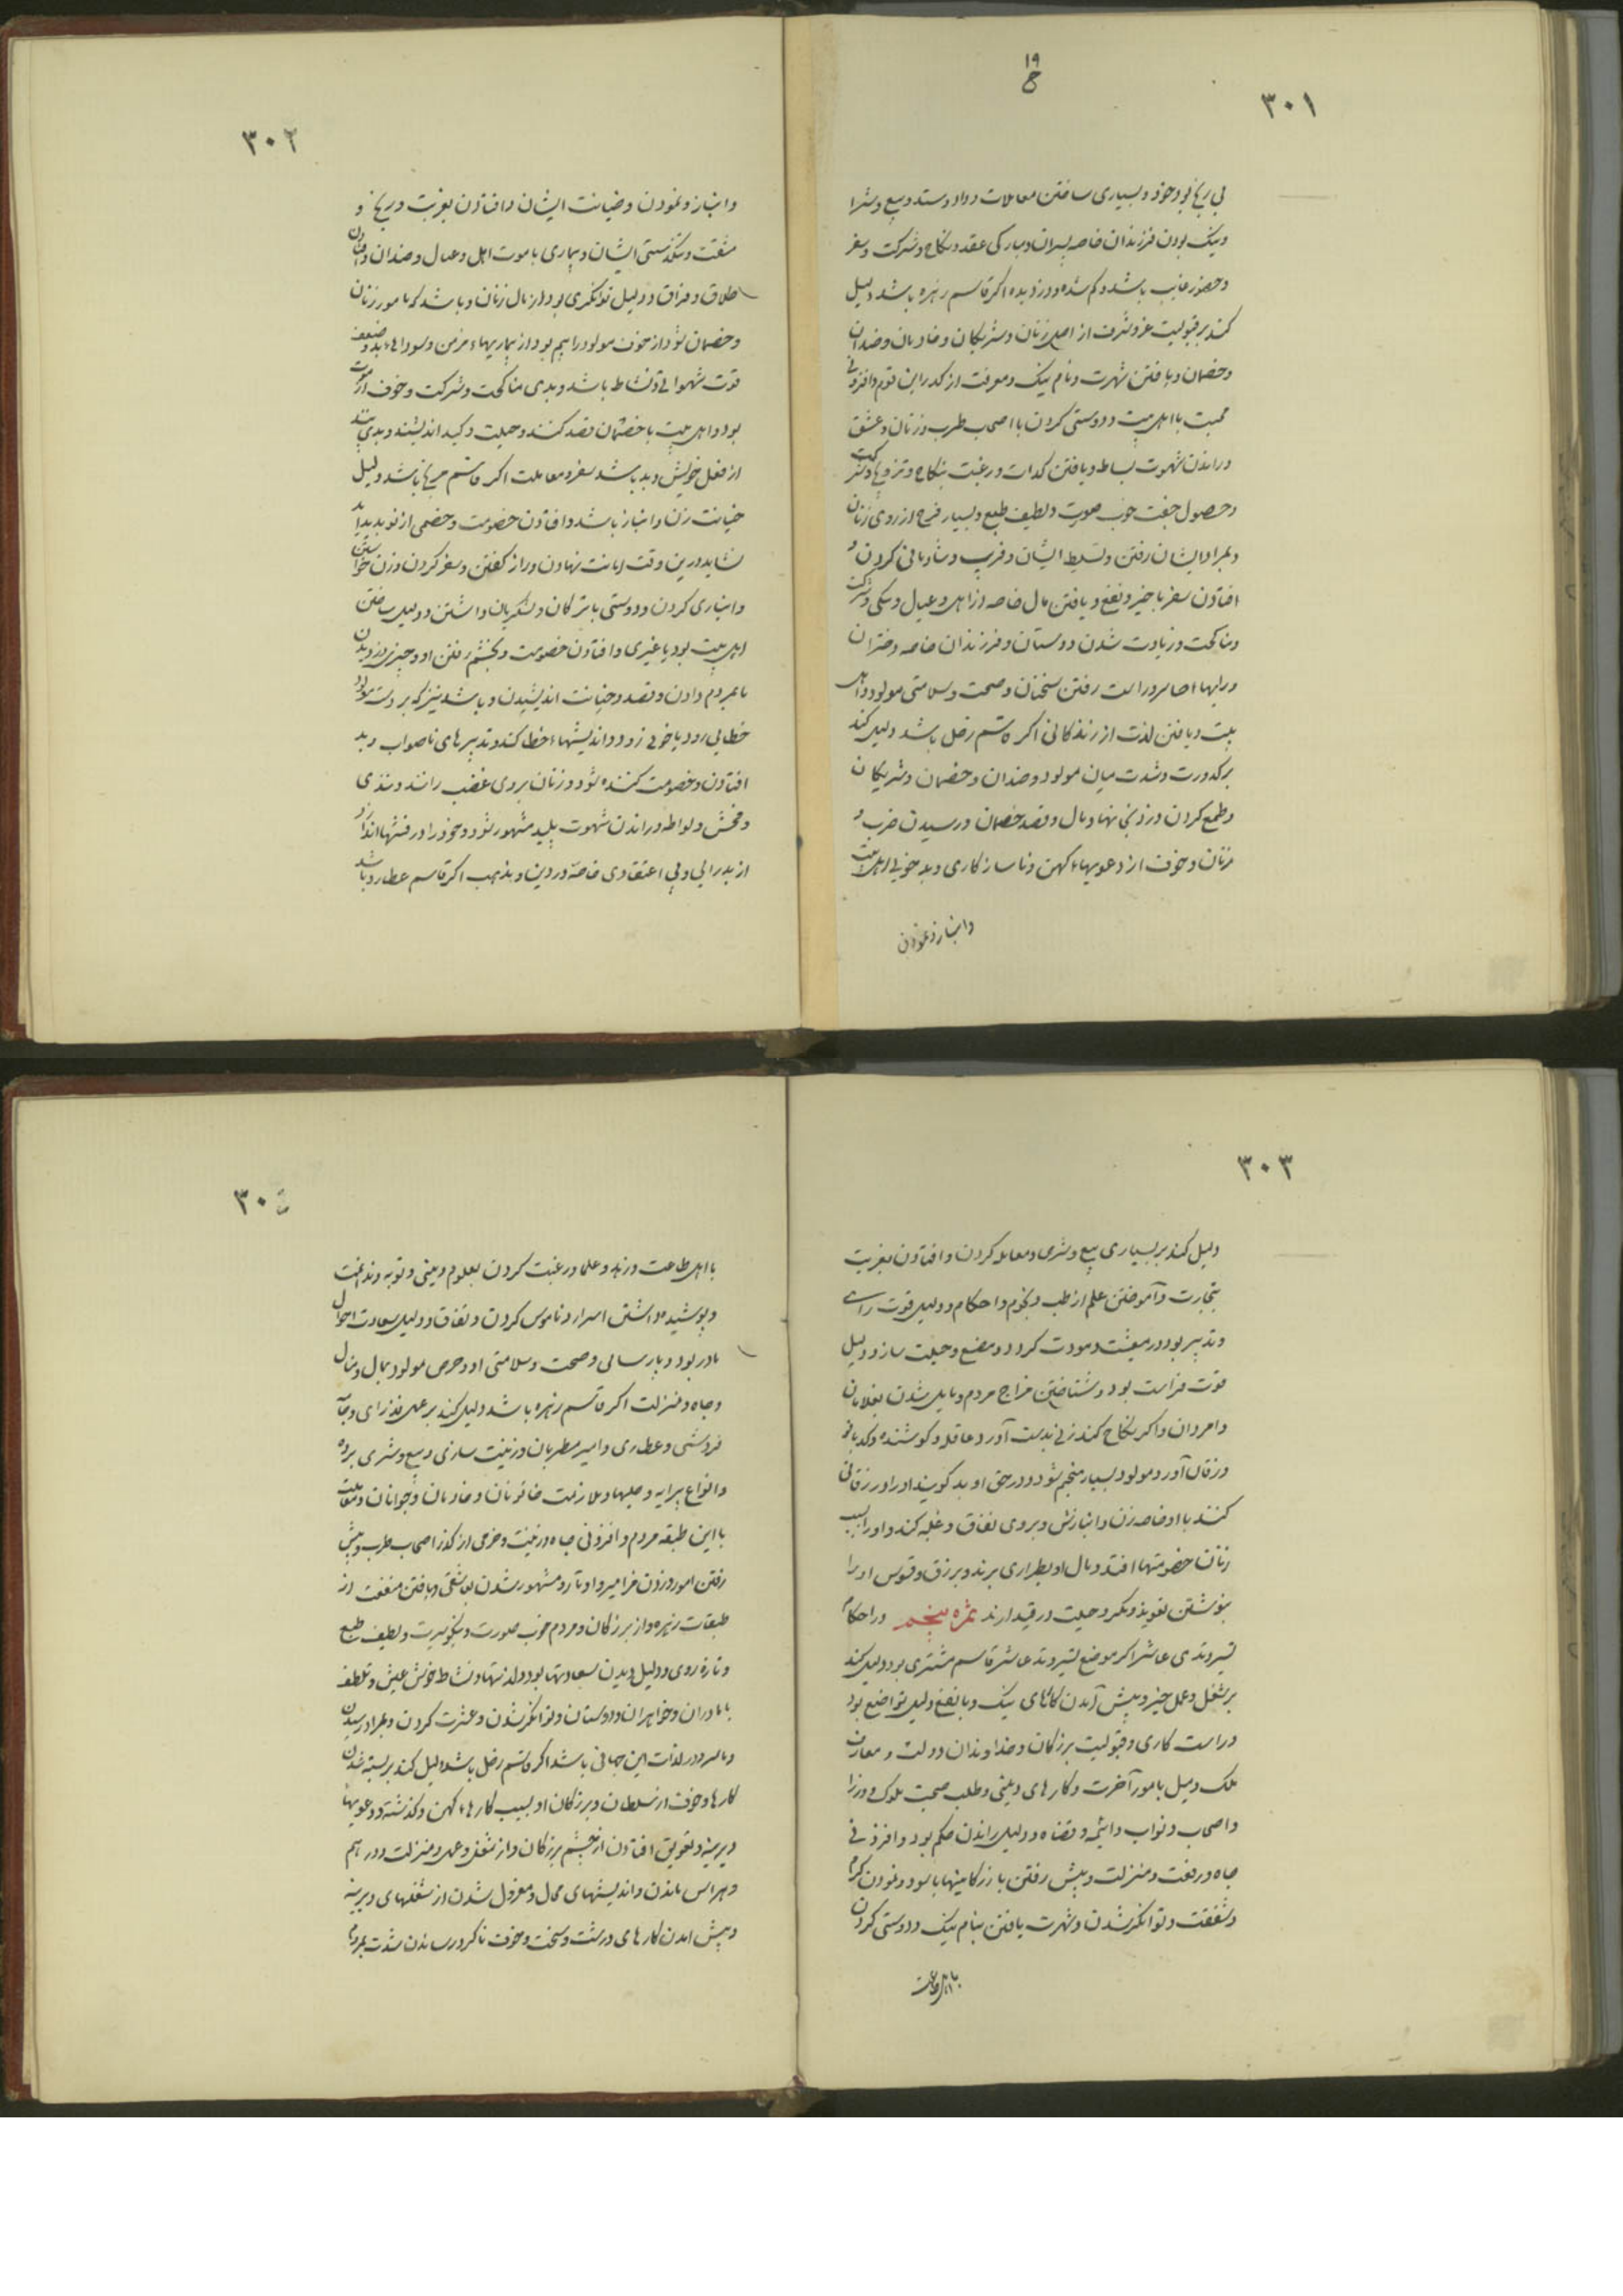 ۱۹
ح
۳۰۱
بی رنج بود خود و بسیاری ساختن معاملات و داد و ستد و بیع و شرا
و نیک بودن فرزندان خاصه پسران و مبارکی عقد و نکاح و شرکت و سفر
و حضور غایب باشد و کم شده و دزدیده اکر قاسم زهره باشد دلیل
کند بر قبولیت عز و شرف از اصل زنان و شریکان و خادمان و ضدان
و خصمان و یافتن شهرت و نام نیک و معرفت از کدر این قوم و افزونی
محبت با اهل بیت و دوستی کردن با اصحاب طرب و زنان و عشق
و راندن شهوت بساط و یافتن لذات و رغبت بنکاح و تزویج و شرکت
و حصول جفت خوب صورت و لطیف طبع و بسیار فرح از روی زنان
و بمراد ایشان رفتن و تسلیط ایشان و فریب و شادمانی کردن و
افتادن سفر با خیر و نفع و یافتن مال خاصه از اهل و عیال و نیکی و شرکت
و مناکحت و زیادت شدن دوستان و فرزندان خاصه دختران
و رایها صابر و راست رفتن سخنان و صحت و سلامتی مولود و اهل
بیت و یافتن لذت از زندکانی اکر قاسم زحل باشد دلیل کند
بر کدورت و شدت میان مولود و ضدان و خصمان و شریکان
و طمع کردن در زنی نهاد مال و قصد خصمان و رسیدن ضرب و
زنان و خوف از دعویهاء کهن و ناسازکاری و بدخویی اهل بیت
وانباز و نمودن
۳۰۲
وانباز و نمودن و خیانت ایشان و افتادن بغربت و رنج و
مشقت و تنکدستی ایشان و بیماری با موت اهل و عیال و ضدان و افتادن
طلاق و فراق و دلیل توانکری بود از مال زنان و باشد که مامور زنان
و خصمان شود از خوف مولود را بیم بود از بیماریهاء مزمن و سوداهاء بد و ضعف
قوت شهوانی و نشاط باشد و بدی مناکحت و شرکت و خوف از موت
بود و اهل بیت با خصمان قصد کنند و حیلت و کید اندیشند و بدی بیند
از فعل خویش و بد باشد سفر و معاملت اکر قاسم مریخ باشد دلیل
خیانت زن و انباز باشد و افتادن خصومت و خصمی از نو پدید آید
نشاید درین وقت امانت نهادن و راز کفتن و سفر کردن و زن خواستن
و انبازی کردن و دوستی با ترکان و لشکریان داشتن و دلیل ساختن
اهل بیت بود یا غیری و افتادن خصومت و بخشم رفتن او و چیزی دزدیدن
یا بمردم دادن و قصد و خیانت اندیشیدن و باشد نیز که بر دست مولود
خطایی رود یا خونی زود و اندیشهاء خطا کند و تدبیرهای ناصواب و بد
افتادن و خصومت کننده شود و زنان بر وی غضب رانند و تندی
و فحش و لواطه و راندن شهوت پلید مشهور شود و خود را در فتنها اندازد
از بدرایی و بی اعتقادی خاصه در دین و مذهب اکر قاسم عطارد باشد
۳۰۳
دلیل کند بر بسیاری بیع و شری و معامله کردن و افتادن بغربت
بتجارت و آموختن علم از طب و نجوم و احکام و دلیل قوت رای
و تدبیر بود در معیشت و مودت کردد و مضع و حیلت سازد و دلیل
قوت فراست بود و شناختن مزاج مردم و مایل شدن بغلامان
و امردان و اکر نکاح کند زنی بدست آورد عاقله و کوشنده و کدبانو
و زقان آور و مولود بسیار منجم شود و در حق او بد کویند او را در زقانی
کنند با او خاصه زن و انبازش و بر وی نفاق و غلبه کند و او را بسبب
زنان خصومتها افتد و مال او بطراری برند و برزق و فسوس او را
بنوشتن تعویذ و مکر و حیلت در قید ارند ثمره پنجم در احکام
تسیر وتدی عاشر اکر موضع تسیر وتد عاشر قاسم مشتری بود دلیل کند
بر شغل و عمل خیر و پیش آمدن کارهای نیک و با نفع و دلیل تواضع بود
و راست کاری و قبولیت بزرکان و خداوندان دولت و معارف
ملک و میل بامور آخرت و کارهای دینی و طلب صحبت ملوک و وزرا
و اصحاب و نواب و ائمه و قضاة و دلیل راندن حکم بود و افزونی
جاه و رفعت و منزلت و پیش رفتن بازرکانیها با سود و نمودن کرم
و شفقت و توانکر شدن و شهرت یافتن بنام نیک و دوستی کردن
با اهل طاعت
۳۰۴
با اهل طاعت و زهد و علما و رغبت کردن بعلوم دینی و توبه و ندامت
و پوشیده داشتن اسرار و ناموس کردن و نفاق و دلیل سعادت احوال
مادر بود و پارسائی و صحت و سلامتی او و حرص مولود بمال و منال
و جاه و منزلت اکر قاسم زهره باشد دلیل کند بر عمل
فروشی و عطاری و امیر مطربان و زینت سازی و بیع و شری برده
و انواع پیرایه و حلیها و ملازمت خاتونان و خادمان و جوانان و معاملت
با این طبقه مردم و افزونی جاه و زینت و خرمی از کذر اصحاب طرب و پیش
رفتن امور و زدن مزامیر و اوتار و مشهور شدن بعاشقی و یافتن منفعت از
طبقات زهره و از بزرکان و مردم خوب صورت و نیکو سیرت و لطیف طبع
و تازه روی و دلیل دیدن سعادتها بود و لذتها و نشاط خوش عیش و تلطف
با مادران و خواهران و دوستان و توانکر شدن و عشرت کردن و بمراد رسیدن
و مسرور در لذات این جهانی باشد اکر قاسم زحل باشد دلیل کند بر بسته شدن
کارها و خوف از سلطان و بزرکان او بسبب کارهاء کهن و کذشته و دعویهاء
دیرینه و تعویق افتادن از چشم بزرکان و از شغل و عمل و منزلت و در هم
و هراس ماندن و اندیشهای محال و معزول شدن از شغلهای دیرینه
و پیش امدن کارهای درشت و سخت و خوف ناک و رسانیدن شدت بمردم